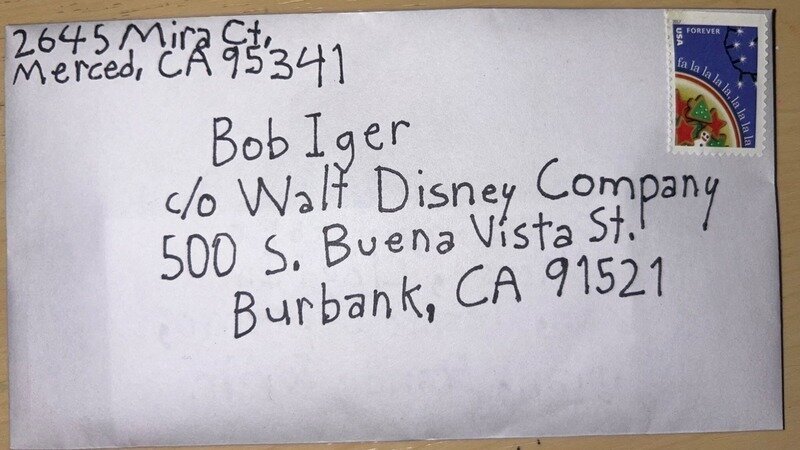 2645 Mira Ct.
Merced, CA 95341
USA FOREVER
fa la la la la, la la la la
Bob Iger
c/o Walt Disney Company
500 S. Buena Vista St.
Burbank, CA 91521